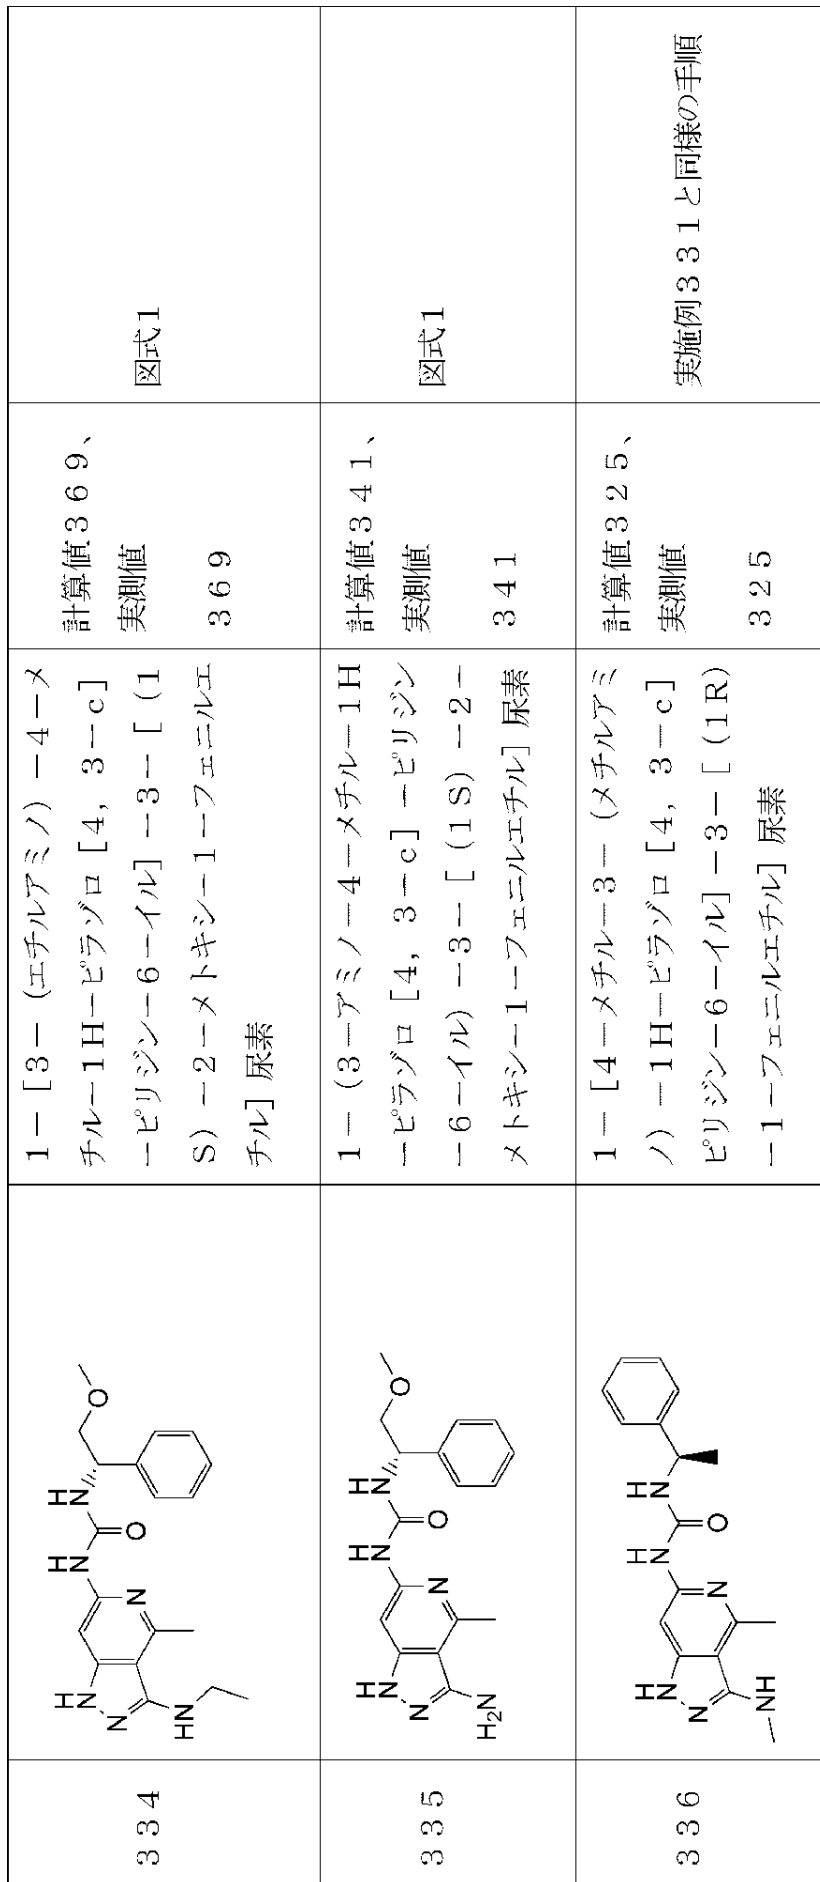 334
1－［3－（エチルアミノ）－4－メ
チル－1H－ピラゾロ［4，3－c］
－ピリジン－6－イル］－3－［（1
S）－2－メトキシ－1－フェニルエ
チル］尿素
計算値369、
実測値
369
図式1
335
1－（3－アミノ－4－メチル－1H
－ピラゾロ［4，3－c］－ピリジン
－6－イル）－3－［（1S）－2－
メトキシ－1－フェニルエチル］尿素
計算値341、
実測値
341
図式1
336
1－［4－メチル－3－（メチルアミ
ノ）－1H－ピラゾロ［4，3－c］
ピリジン－6－イル］－3－［（1R）
－1－フェニルエチル］尿素
計算値325、
実測値
325
実施例331と同様の手順